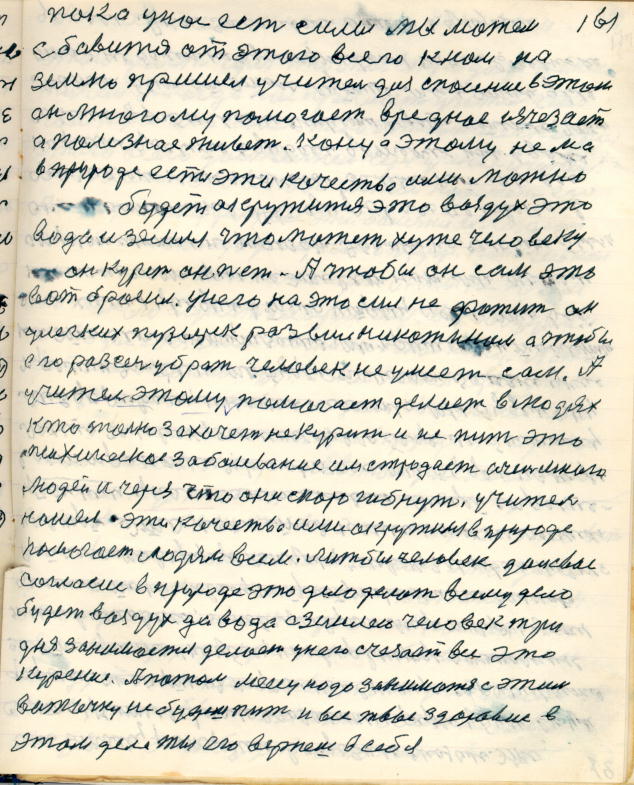 пока у нас ест сили мы можем 161
збавится от этого всего к нам на
землю пришел учител для спосение в этом
он многому помогает вредное изчезает
а полезнае живет. кому а этому нема
в природе ести эти качество ими можно
будет окружится это воздух это
вода и земля что может хуже человеку
он курет он пет. А чтобы он сам это
вот бросил. у него на это сил не фотит он
улегких пузирек развил никотином а чтобы
его разсеч убрат человек не умеет сам. А
учител этому помогает делает в людях
кто толко захочет не курит и не пит это
психическое заболевание им стродает очен много
людей и через это они скоро гибнут. учител
нашел эти качество ими окружил в природе
помогает людям всем. лиш бы человек дал свае
согласие в природе это дело делат всему дело
будет воздух да вода с землею человек три
дня занимается делает у него счезает все это
курение. А потом можу нодо заниматя с этим
ватычку не будеш пит и все твое здоровие в
этом деле ты его вернеш в себя